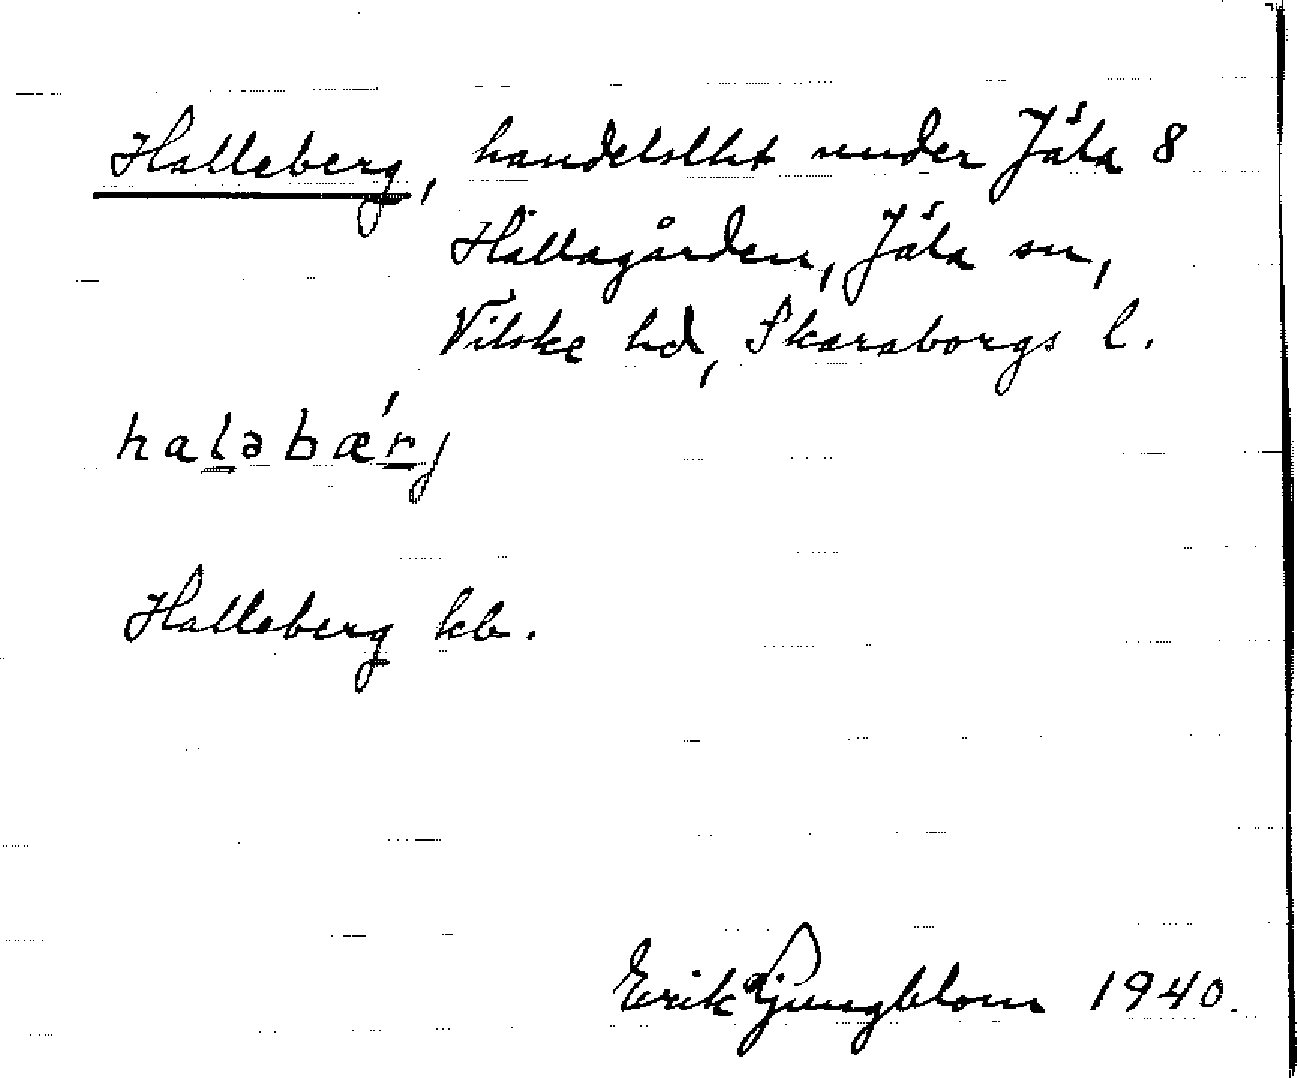 Halleberg, handelslht under Jäla 8
Hällagården, Jäla sn,
Vilske hd, Skaraborgs l.
haḻəbǽṟj
Halleberg kb.
Erik Ljungblom 1940.